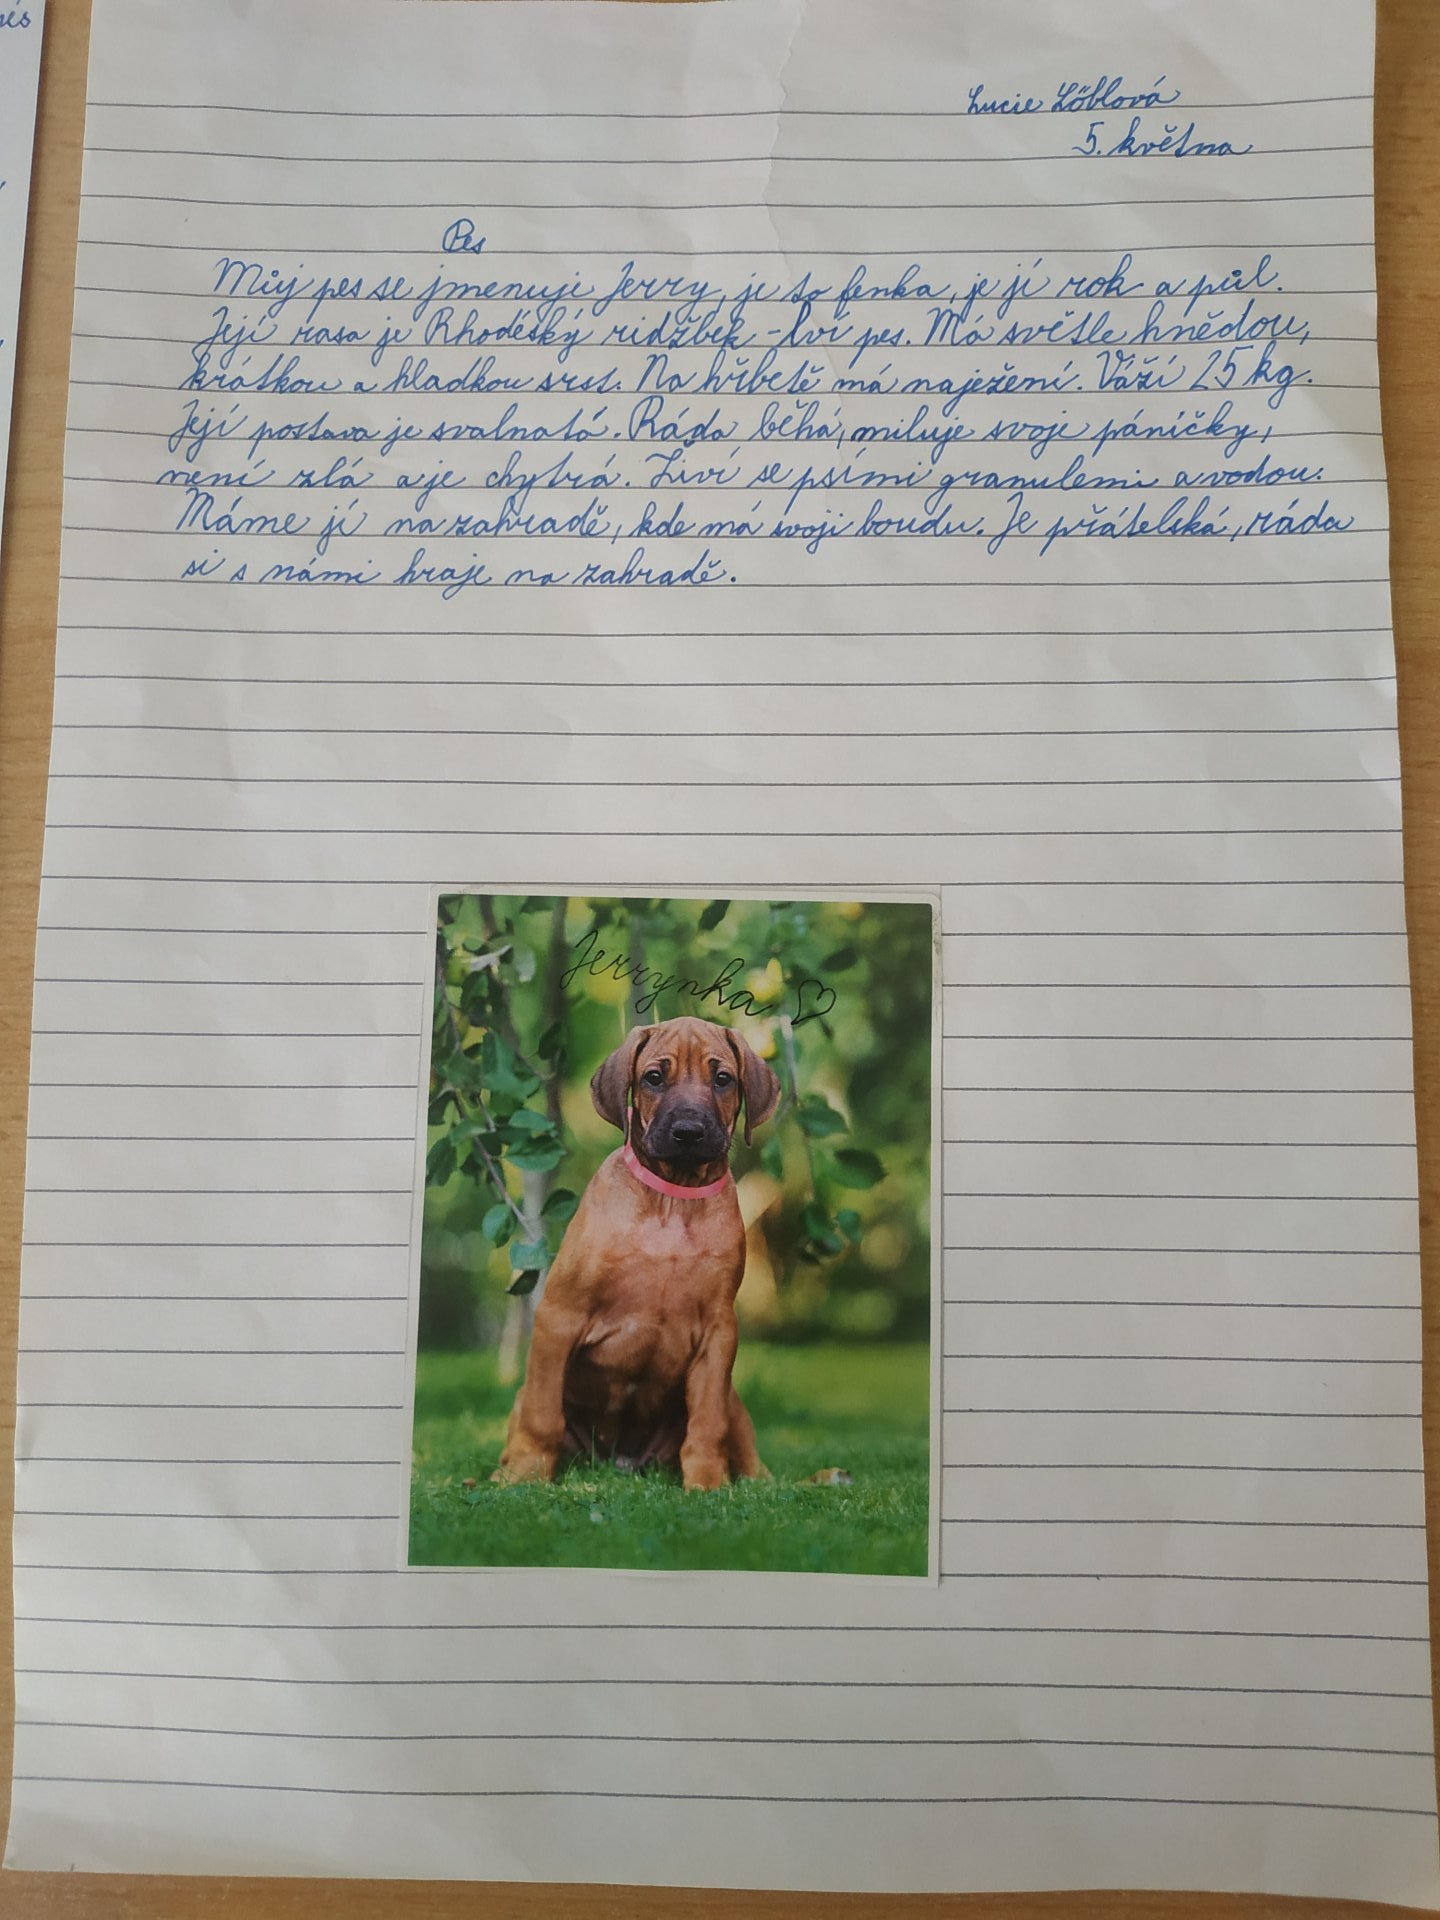 Lucie Löblová
5. května
Pes
Můj pes se jmenuje Jerry, je to fenka, je jí rok a půl.
Její rasa je Rhodéský ridžbek - lví pes. Má světle hnědou,
krátkou a hladkou srst. Na hřbetě má naježení. Váží 25 kg.
Její postava je svalnatá. Ráda běhá, miluje svoje páníčky,
není zlá a je chytrá. Živí se psími granulemi a vodou.
Máme jí na zahradě, kde má svoji boudu. Je přátelská, ráda
si s námi hraje na zahradě.
Jerrynka ♡